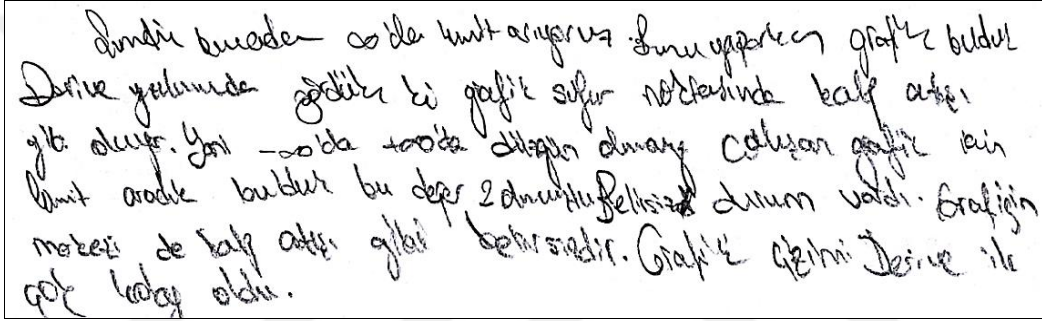 Şimdi burada ∞'da limit arıyoruz. Bunu yaparken grafik bulduk
Derive yazılımında gördük ki grafik sıfır noktasında kalp atışı
gibi oluyor. Yani -∞'da +∞'da düzgün olmaya çalışan grafik için
limit aradık bulduk bu değer 2 Belirsiz durum vardı. Grafiğin
merkezi de kalp atışı gibi belirsizdir. Grafik çizimi Derive ile
çok kolay oldu.